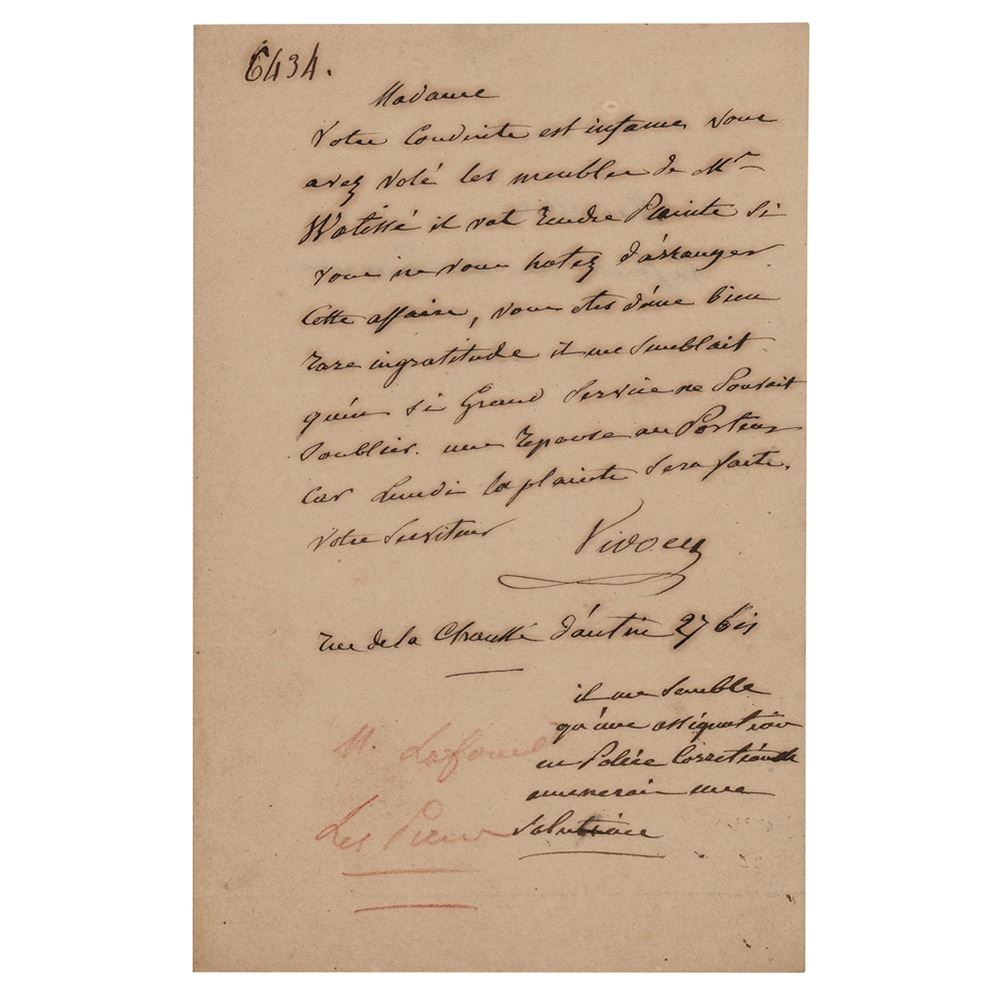 6434.
Madame
Votre Conduite est infame, vous
avez volé les meubles de Mr
Watissé il vat rendre Plainte si
vous ne vous hatez d'arranger
Cette affaire, vous etes d'une bien
rare ingratitude il me semblait
qu'un si Grand Service ne Pouvait
s'oublier. une reponse au Porteur
car Lundi la plainte sera faite.
votre serviteur Vidocq
rue de la Chaussé d'antin 27 bis
il me semble
qu'une assignation
en Police Corretionelle
amenerai une
solution
M. Lafond
Les Pieces